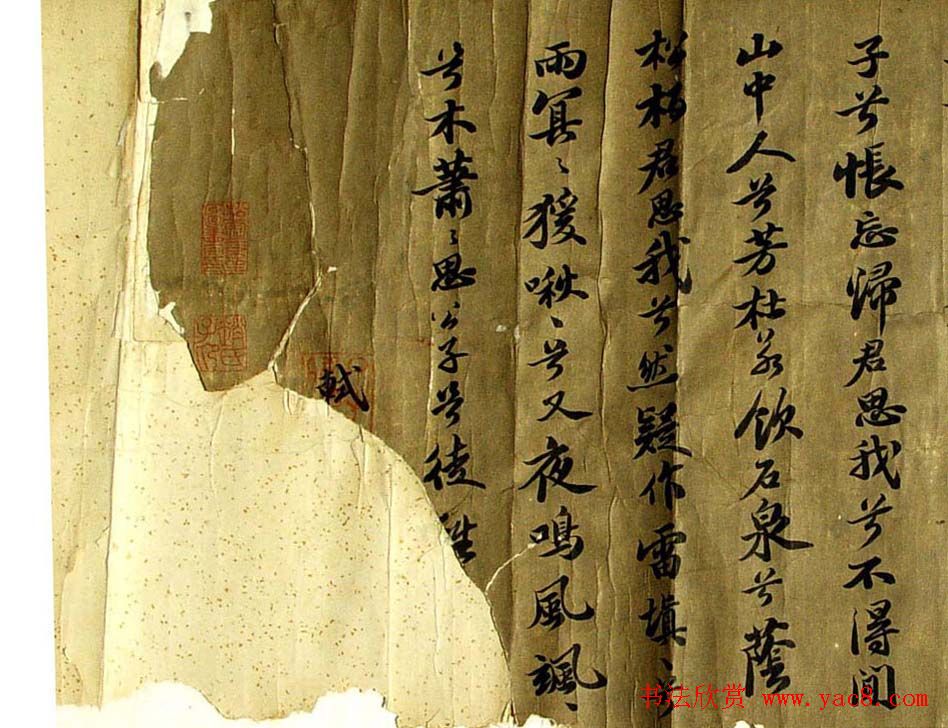 子兮悵忘歸君思我兮不得間
山中人兮芳杜若飲石泉兮蔭
松柏君思我兮然疑作雷填〻兮
雨冥〻猨啾〻兮又夜鳴風颯〻
兮木蕭〻思公子兮徒
軾
趙氏子昂
书法欣赏 www.yac8.com